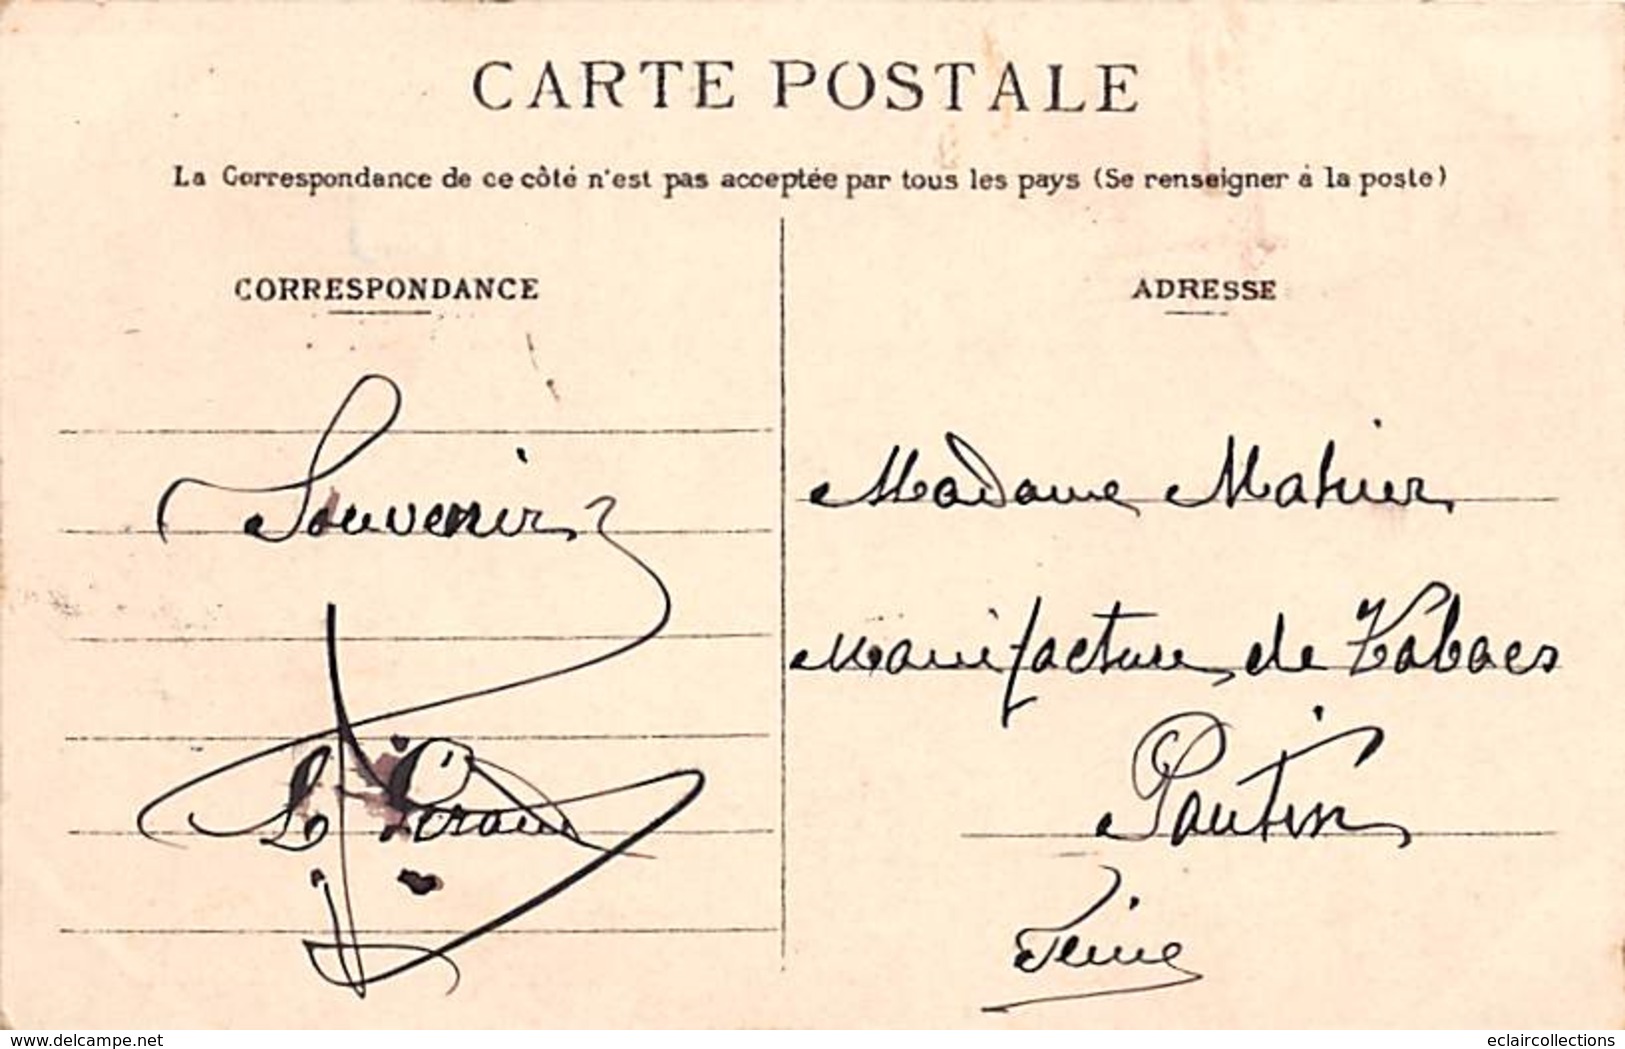 CARTE POSTALE
La Correspondance de ce côté n'est pas acceptée par tous les pays (Se renseigner à la poste)
CORRESPONDANCE
Souvenir
ADRESSE
Madame Mahier
Manufacture de Tabacs
Pantin
Seine
www.delcampe.net
eclaircollections